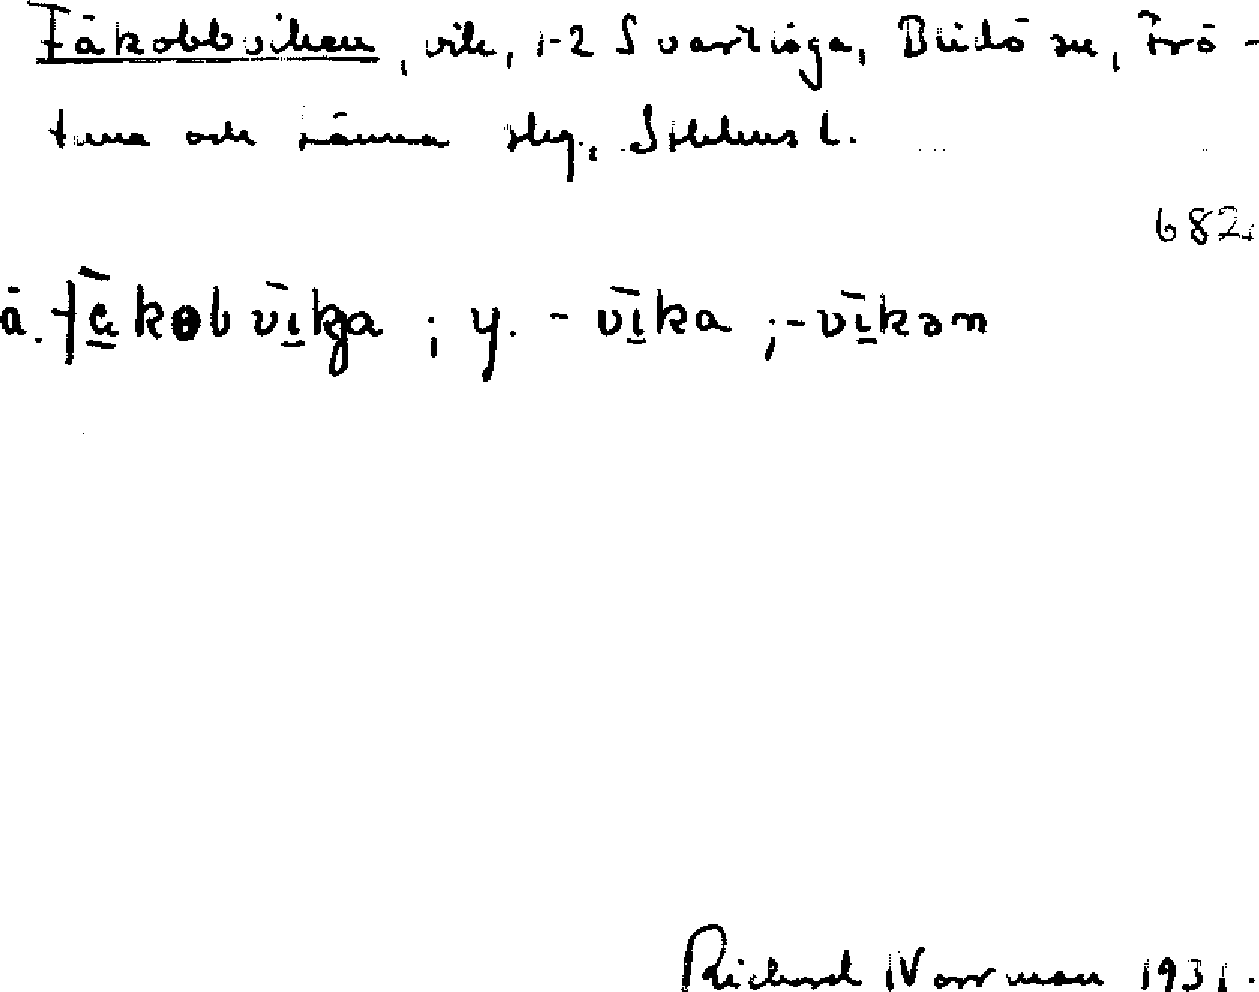 Fåkobbviken, vik, 1-2 Svartlöga, Blidö sn, Frö-
tuna och Länna skg, Sthlms l.
682.
ä. få̱kobvi̱kja ; y. - vi̱ka ; -vi̱kən
Richard Norrman 1931.